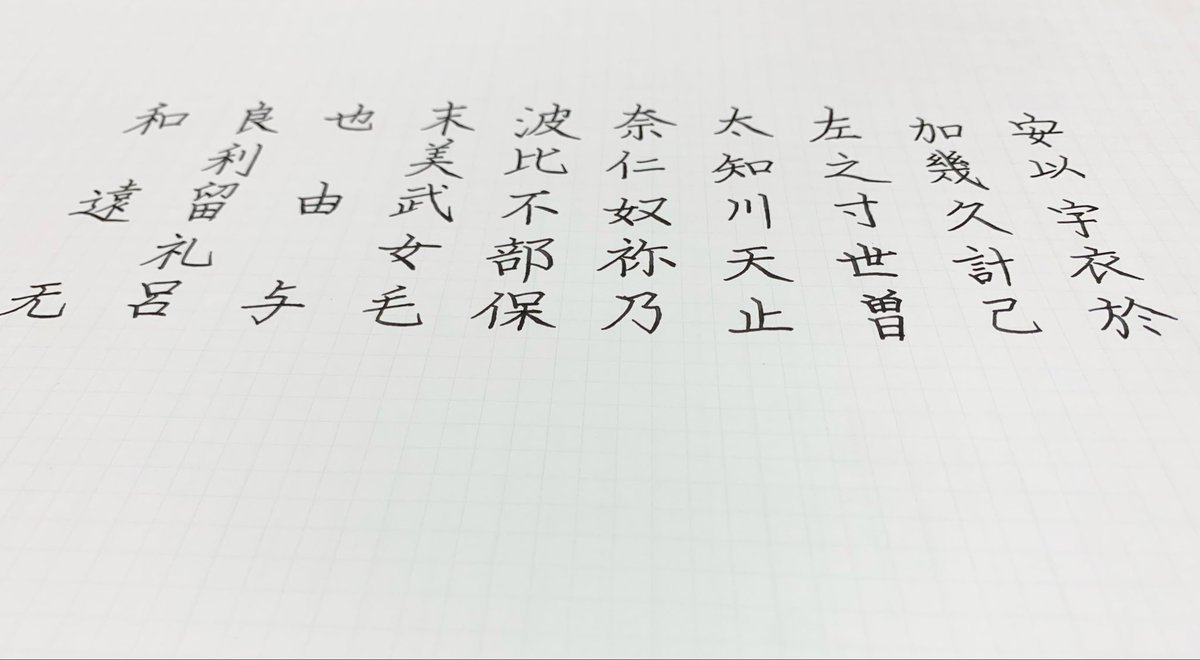 安以宇衣於
加幾久計己
左之寸世曽
太知川天止
奈仁奴祢乃
波比不部保
末美武女毛
也由与
良利留礼呂
和遠无